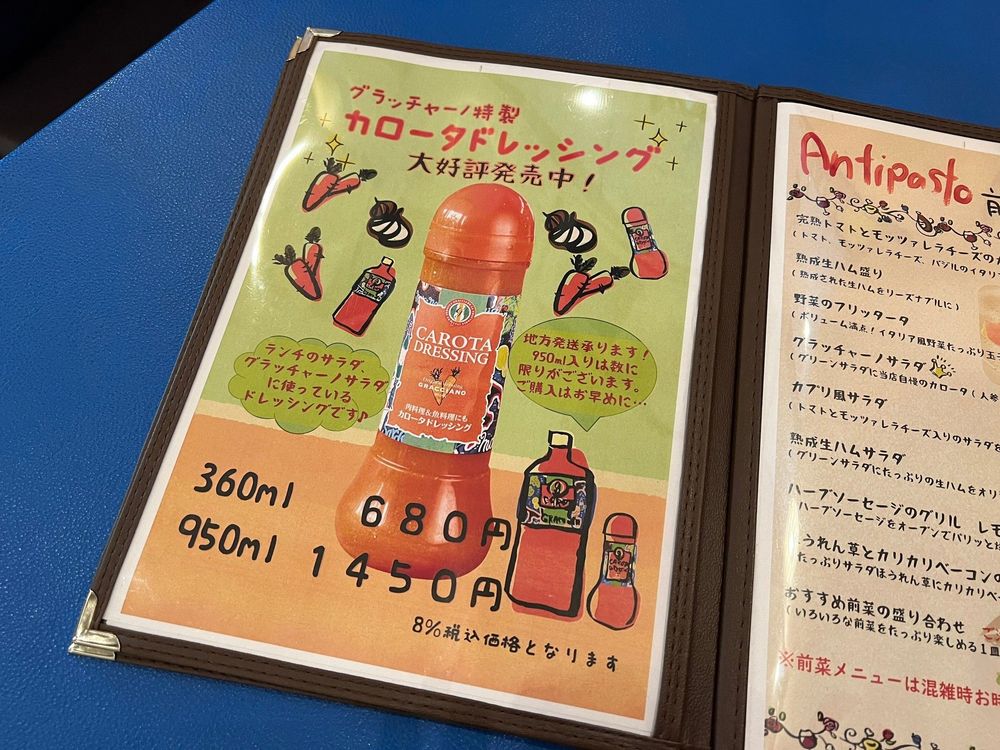 グラッチャーノ特製
カロータドレッシング
大好評発売中！
ランチのサラダ、
グラッチャーノサラダ
に使っている
ドレッシングです♪
CAROTA
DRESSING
GRACCIANO
肉料理&魚料理にも
カロータドレッシング
地方発送承ります！
950ml入りは数に
限りがございます。
ご購入はお早めに…
360ml 680円
950ml 1450円
8%税込価格となります
Antipasto 前
完熟トマトとモッツァレラチーズのカ
(トマト、モッツァレラチーズ、バジルのイタリ
熟成生ハム盛り
(熟成された生ハムをリーズナブルに)
野菜のフリッタータ
(ボリューム満点！イタリア風野菜たっぷり玉子
グラッチャーノサラダ
(グリーンサラダに当店自慢のカロータ(人参
カプリ風サラダ
(トマトとモッツァレラチーズ入りのサラダを
熟成生ハムサラダ
(グリーンサラダにたっぷりの生ハムをオリ
ハーブソーセージのグリル レモ
ハーブソーセージをオーブンでパリッと
ほうれん草とカリカリベーコンの
たっぷりサラダほうれん草にカリカリベー
おすすめ前菜の盛り合わせ
(いろいろな前菜をたっぷり楽しめる1皿
※前菜メニューは混雑時お時